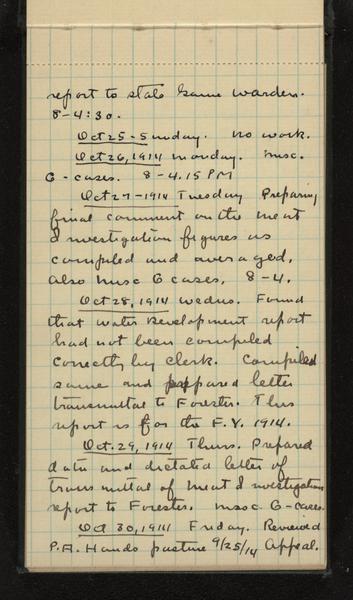 report to state Game Warden.
8-4:30.
Oct 25 - Sunday. No work.
Oct 26, 1914 Monday. Misc.
G - cases. 8 - 4.15 PM
Oct 27 - 1914 Tuesday Preparing
final comment on the Meat
Investigation figures as
compiled and averaged,
also misc G cases, 8-4.
Oct 28, 1914 Wednes. Found
that water Development report
had not been compiled
correctly by clerk. Compiled
same and prepared letter
transmittal to Forester. This
report is for the F.Y. 1914.
Oct. 29, 1914 Thurs. Prepared
data and dictated letter of
transmittal of Meat Investigation
report to Forester. Misc G-cases.
Oct 30, 1914 Friday. Reviewed
P.A. Hands pasture 9/25/14 Appeal.